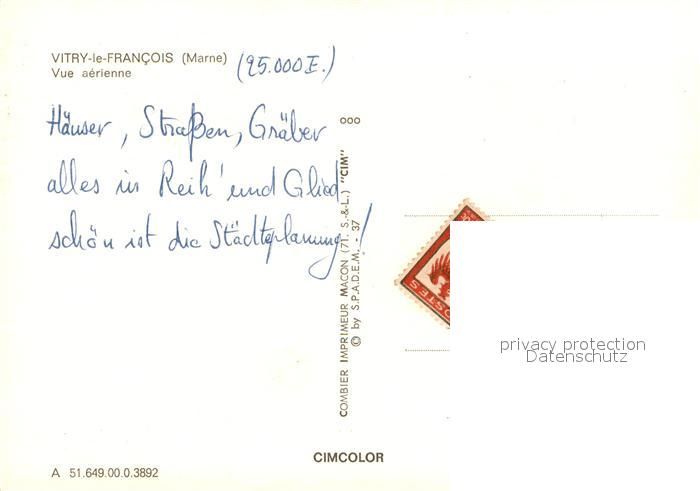 VITRY-le-FRANÇOIS (Marne) (25.000 E.)
Vue aérienne
Häuser, Straßen, Gräber
alles in Reih' und Glied
schön ist die Städteplanung!
COMBIER IMPRIMEUR MACON (71. S.-&-L.) "CIM"
© by S.P.A.D.E.M. - 37
POSTES
privacy protection
Datenschutz
CIMCOLOR
A 51.649.00.0.3892